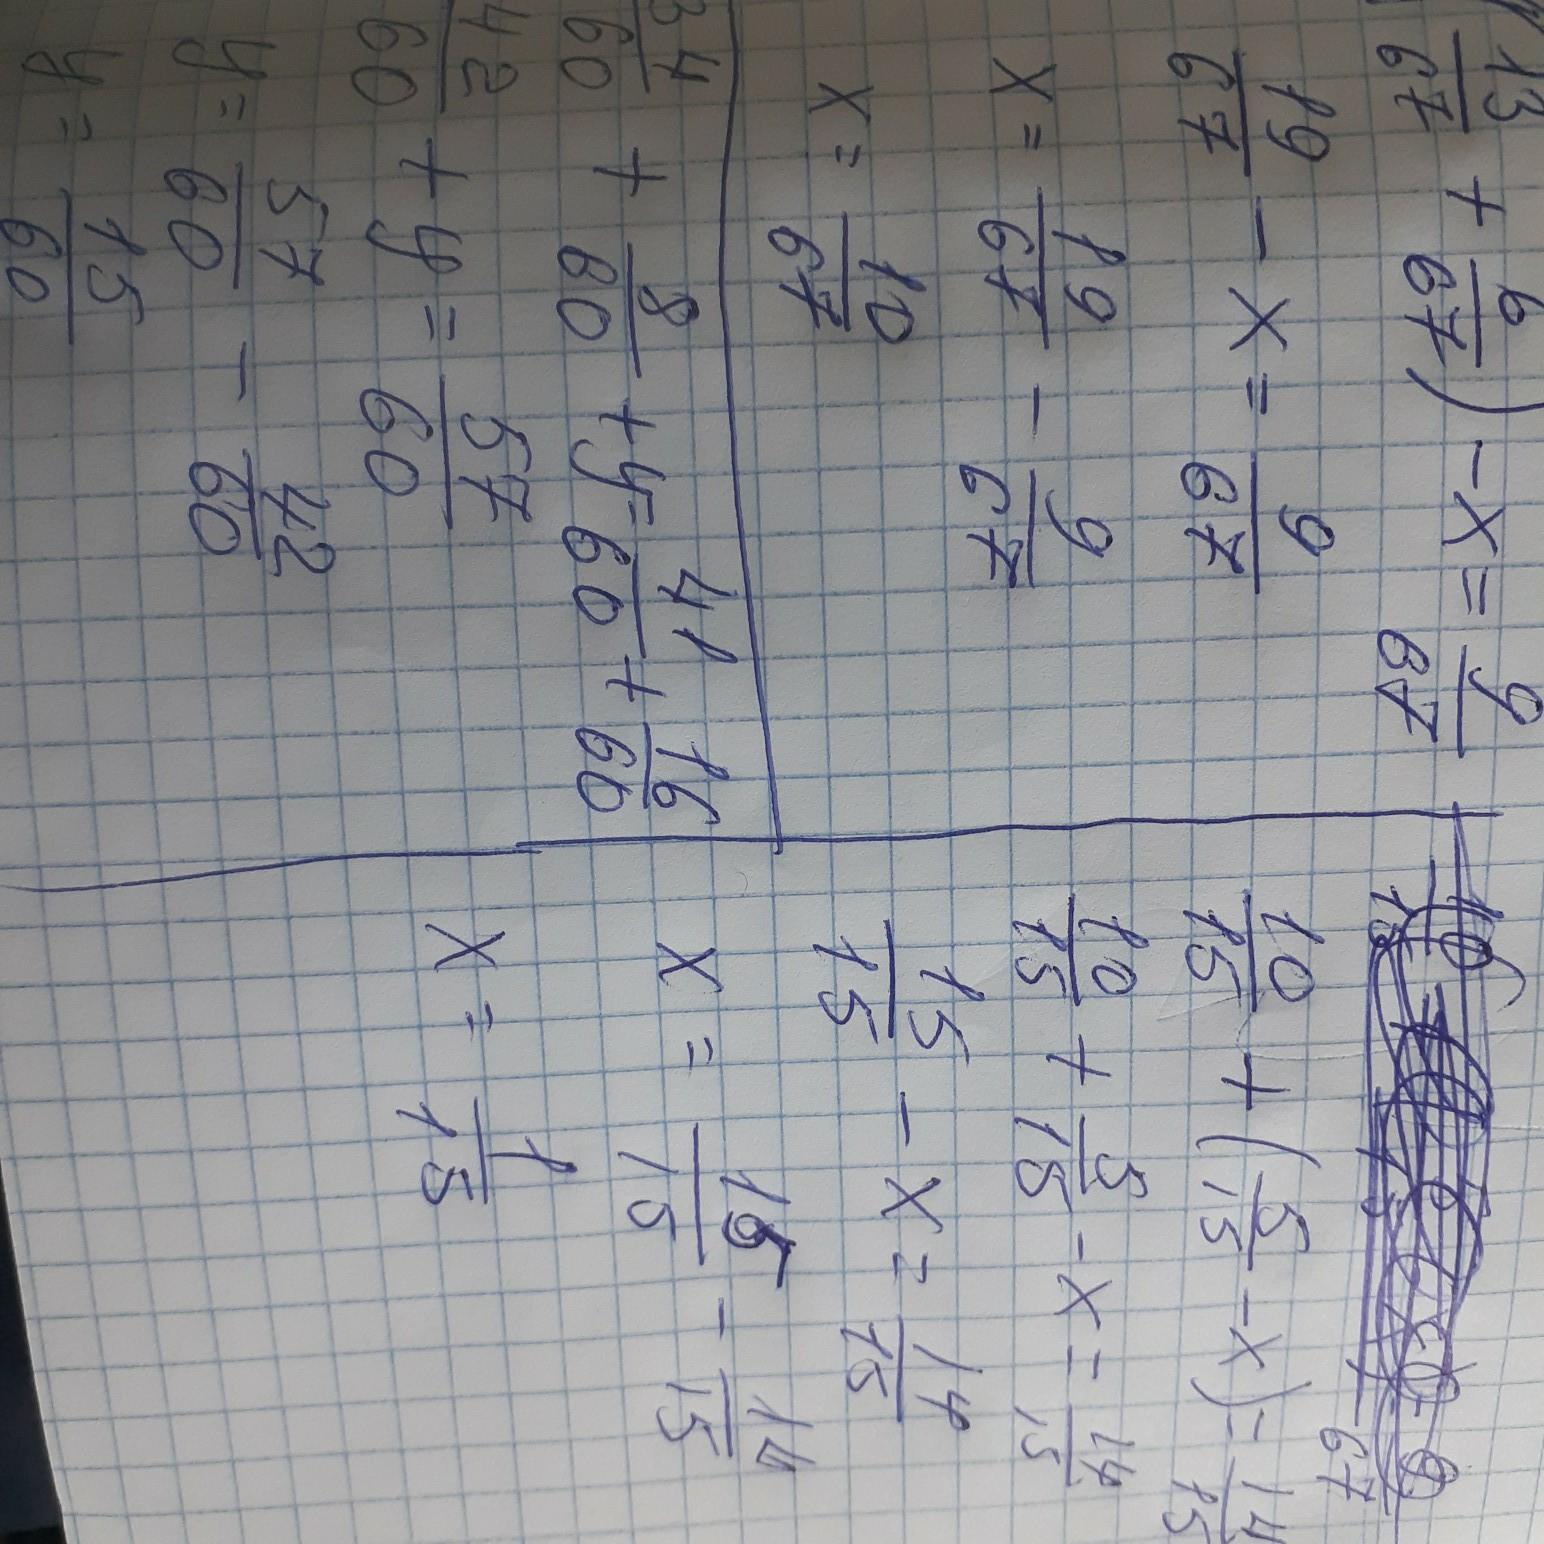 13/67 + 6/67) - x = 9/67
19/67 - x = 9/67
x = 19/67 - 9/67
x = 10/67
34/60 + 8/60 + y = 41/60 + 16/60
42/60 + y = 57/60
y = 57/60 - 42/60
y = 15/60
10/15 + (5/15 - x) = 14/15
10/15 + 5/15 - x = 14/15
15/15 - x = 14/15
x = 15/15 - 14/15
x = 1/15